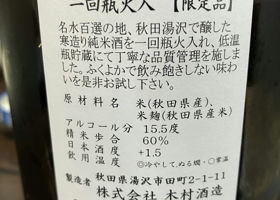 一回瓶火入 【限定品】
名水百選の地、秋田湯沢で醸した
寒造り純米酒を一回瓶火入れ、低温
瓶貯蔵にて丁寧な品質管理を施しま
した。ふくよかで飲み飽きしない味わ
いを是非お試し下さい。
原材料名 米(秋田県産)、
米麹(秋田県産米)
アルコール分 15.5度
精米歩合 60%
日本酒度 +1.5
飲用温度 ◎冷やして、ぬる燗・○常温
製造者 秋田県湯沢市田町2-1-11
株式会社 木村酒造